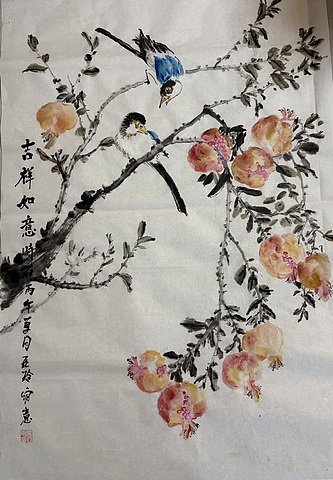 吉祥如意時丙午夏月玉玲寫意